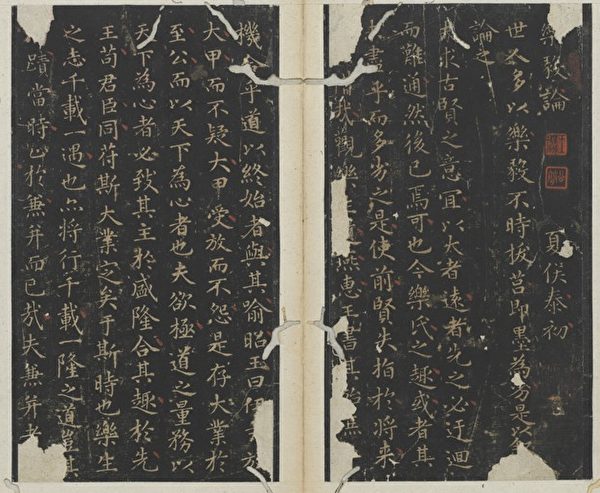 樂毅論 夏侯泰初
世人多以樂毅不時拔莒即墨為劣是以
論之
夫求古賢之意宜以大者遠者先之必迂迴
而難通然後已焉可也今樂氏之趣或者其
盡乎而多劣之是使前賢失指於將來
哉觀樂生遺燕惠王書其殆庶
機合乎道以終始者與其喻昭王曰伊尹放
大甲而不疑大甲受放而不怨是存大業於
至公而以天下為心者也夫欲極道之量務以
天下為心者必致其主於盛隆合其趣於先
王苟君臣同苻斯大業定矣于斯時也樂生
之志千載一遇也亦將行千載一隆之道豈其
蹟當時止於兼并而已哉夫兼并者